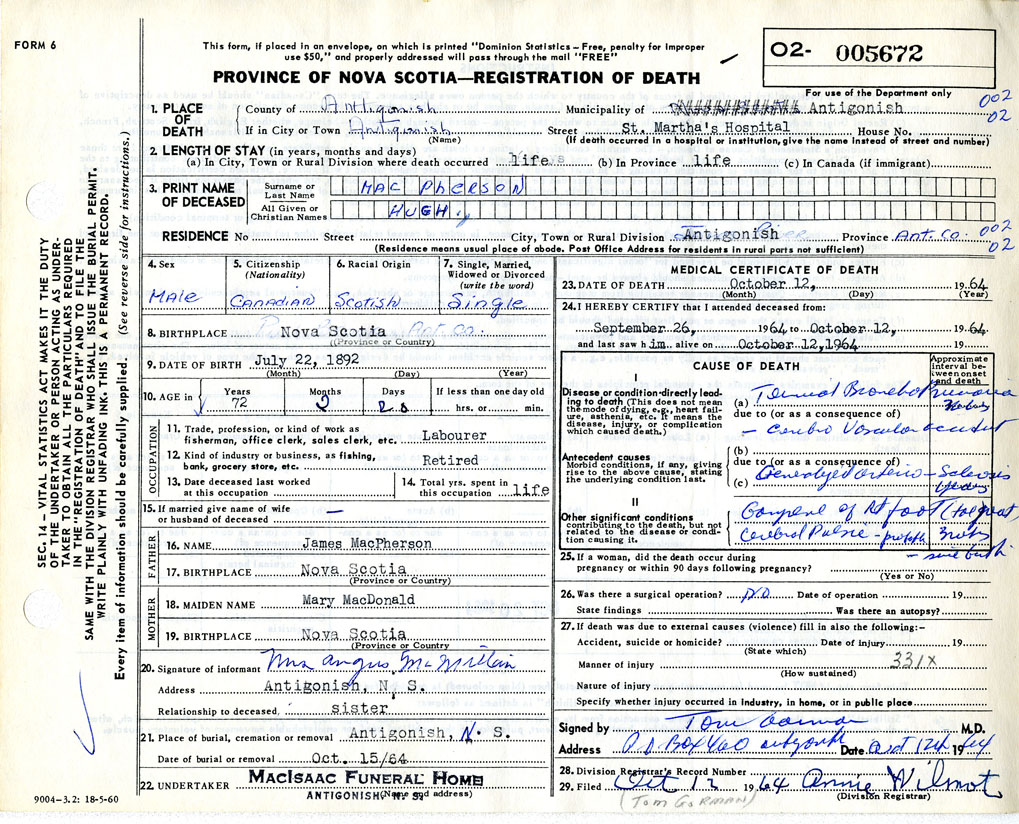 FORM 6
This form, if placed in an envelope, on which is printed "Dominion Statistics – Free, penalty for improper
use $50," and properly addressed will pass through the mail "FREE"
PROVINCE OF NOVA SCOTIA—REGISTRATION OF DEATH
O2- 005672
For use of the Department only
SEC. 14 – VITAL STATISTICS ACT MAKES IT THE DUTY
OF THE UNDERTAKER OR PERSON ACTING AS UNDER-
TAKER TO OBTAIN ALL THE PARTICULARS REQUIRED
IN THE "REGISTRATION OF DEATH" AND TO FILE THE
SAME WITH THE DIVISION REGISTRAR WHO SHALL ISSUE THE BURIAL PERMIT.
WRITE PLAINLY WITH UNFADING INK. THIS IS A PERMANENT RECORD.
Every item of information should be carefully supplied. (See reverse side for instructions.)
1. PLACE OF DEATH
County of Antigonish Municipality of Antigonish 002 02
If in City or Town Antigonish Street St. Martha's Hospital House No.
(Name) (If death occurred in a hospital or institution, give the name instead of street and number)
2. LENGTH OF STAY (in years, months and days)
(a) In City, Town or Rural Division where death occurred life (b) In Province life (c) In Canada (if immigrant)
3. PRINT NAME OF DECEASED
Surname or Last Name MAC PhERSON
All Given or Christian Names HUGH.
RESIDENCE No Street City, Town or Rural Division Antigonish Province Ant. Co. 002 02
(Residence means usual place of abode. Post Office Address for residents in rural parts not sufficient)
4. Sex Male
5. Citizenship (Nationality) Canadian
6. Racial Origin Scotish
7. Single, Married, Widowed or Divorced (write the word) Single
8. BIRTHPLACE Nova Scotia Ant. Co.
(Province or Country)
9. DATE OF BIRTH July 22, 1892
(Month) (Day) (Year)
10. AGE in Years 72 Months Days If less than one day old
hrs. or min.
OCCUPATION
11. Trade, profession, or kind of work as
fisherman, office clerk, sales clerk, etc. Labourer
12. Kind of industry or business, as fishing,
bank, grocery store, etc. Retired
13. Date deceased last worked
at this occupation
14. Total yrs. spent in
this occupation life
15. If married give name of wife
or husband of deceased —
FATHER
16. NAME James MacPherson
17. BIRTHPLACE Nova Scotia
(Province or Country)
MOTHER
18. MAIDEN NAME Mary MacDonald
19. BIRTHPLACE Nova Scotia
(Province or Country)
20. Signature of informant Mrs Angus McMillan
Address Antigonish, N. S.
Relationship to deceased. sister
21. Place of burial, cremation or removal Antigonish, N. S.
Date of burial or removal Oct. 15/64
22. UNDERTAKER MACISAAC FUNERAL HOME
ANTIGONISH, N. S.
(Name and address)
9004–3.2: 18-5-60
MEDICAL CERTIFICATE OF DEATH
23. DATE OF DEATH October 12, 1964
(Month) (Day) (Year)
24. I HEREBY CERTIFY that I attended deceased from:
September 26, 1964 to October 12, 1964
and last saw him alive on October 12,1964 19
CAUSE OF DEATH
Approximate interval between onset and death
I
Disease or condition directly lead-
ing to death (This does not mean
the mode of dying, e.g., heart fail-
ure, asthenia, etc. It means the
disease, injury, or complication
which caused death.)
(a) Terminal Broncho Pneumonia
due to (or as a consequence of)
– Cerebro Vascular accident
Antecedent causes
Morbid conditions, if any, giving
rise to the above cause, stating
the underlying condition last.
(b)
due to (or as a consequence of)
(c) Generalyzed arterio-Sclerosis years
II
Other significant conditions
contributing to the death, but not
related to the disease or condi-
tion causing it.
Gangrene of Rt foot
Cerebral Palsie – since birth
25. If a woman, did the death occur during
pregnancy or within 90 days following pregnancy?
(Yes or No)
26. Was there a surgical operation? NO Date of operation 19
State findings Was there an autopsy?
27. If death was due to external causes (violence) fill in also the following:–
Accident, suicide or homicide? Date of injury 19
(State which)
Manner of injury 331X
(How sustained)
Nature of injury
Specify whether injury occurred in industry, in home, or in public place
Signed by Tom Gorman M.D.
Address P.O Box 460 Antigonish Date Oct 12th 1964
28. Division Registrar's Record Number
29. Filed Oct 12 1964 Annie Wilmot
(TOM GORMAN) (Division Registrar)